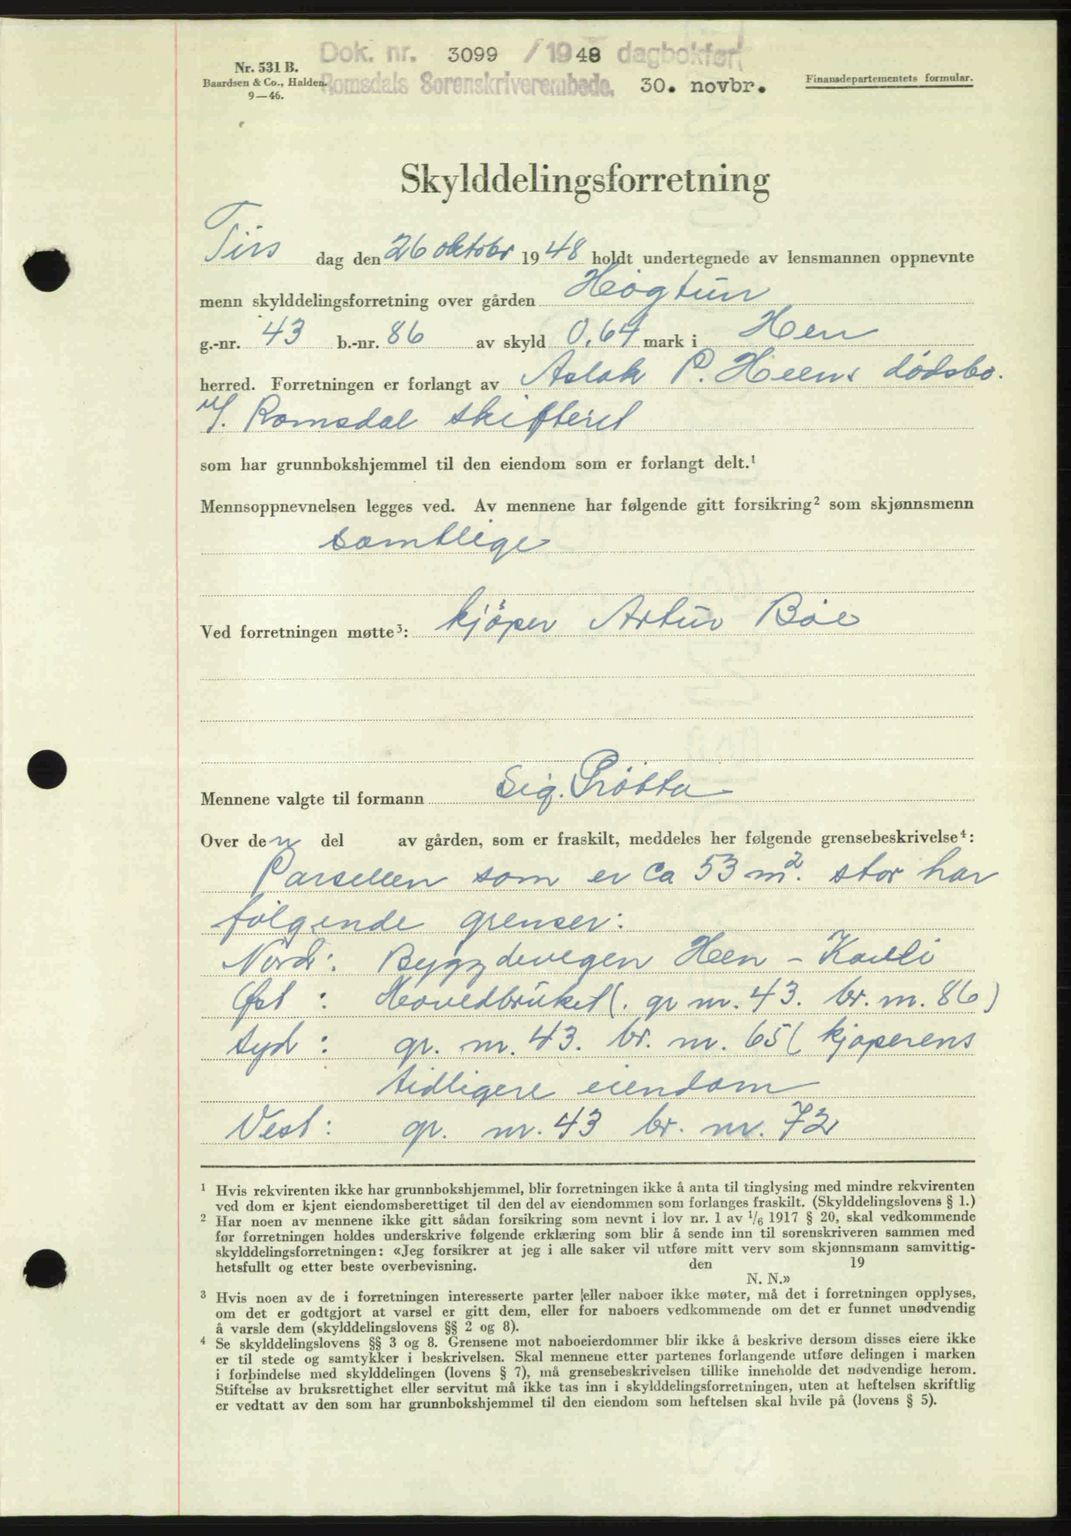 Dok. nr. 3099 / 1948 dagbokført
Nr. 531 B.
Baardsen & Co., Halden.
9—46.
Romsdals Sorenskriverembede. 30. novbr.
Finansdepartementets formular.
Skylddelingsforretning
Tirs dag den 26 oktobr 1948 holdt undertegnede av lensmannen oppnevnte
menn skylddelingsforretning over gården Høgtun
g.-nr. 43 b.-nr. 86 av skyld 0,64 mark i Hen
herred. Forretningen er forlangt av Aslak P. Heens dødsbo.
v/. Romsdal skifteret
som har grunnbokshjemmel til den eiendom som er forlangt delt.¹
Mennsoppnevnelsen legges ved. Av mennene har følgende gitt forsikring² som skjønnsmenn
samtlige
Ved forretningen møtte³: kjöper Artur Bøe
Mennene valgte til formann Sig. Prøsta
Over den del av gården, som er fraskilt, meddeles her følgende grensebeskrivelse⁴:
Parsellen som er ca 53 m². stor har
følgende grenser:
Nord: Bygdevegen Hen - Kavli
Øst : Hovedbruket (. gr nr. 43. br. nr. 86)
Syd : gr. nr. 43. br. nr. 65 ( kjøperens
tidligere eiendom
Vest: gr. nr. 43 br. nr. 72
¹ Hvis rekvirenten ikke har grunnbokshjemmel, blir forretningen ikke å anta til tinglysing med mindre rekvirenten
ved dom er kjent eiendomsberettiget til den del av eiendommen som forlanges fraskilt. (Skylddelingslovens § 1.)
² Har noen av mennene ikke gitt sådan forsikring som nevnt i lov nr. 1 av 1/6 1917 § 20, skal vedkommende
før forretningen holdes underskrive følgende erklæring som blir å sende inn til sorenskriveren sammen med
skylddelingsforretningen: «Jeg forsikrer at jeg i alle saker vil utføre mitt verv som skjønnsmann samvittig-
hetsfullt og etter beste overbevisning. den 19
N. N.»
³ Hvis noen av de i forretningen interesserte parter eller naboer ikke møter, må det i forretningen opplyses,
om det er godtgjort at varsel er gitt dem, eller for naboers vedkommende om det er funnet unødvendig
å varsle dem (skylddelingslovens §§ 2 og 8).
⁴ Se skylddelingslovens §§ 3 og 8. Grensene mot naboeierdommer blir ikke å beskrive dersom disses eiere ikke
er til stede og samtykker i beskrivelsen. Skal mennene etter partenes forlangende utføre delingen i marken
i forbindelse med skylddelingen (lovens § 7), må grensebeskrivelsen tillike inneholde det nødvendige herom.
Stiftelse av bruksrettighet eller servitut må ikke tas inn i skylddelingsforretningen, uten at heftelsen skriftlig
er vedtatt av den som har grunnbokshjemmel til den eiendom som heftelsen skal hvile på (lovens § 5).